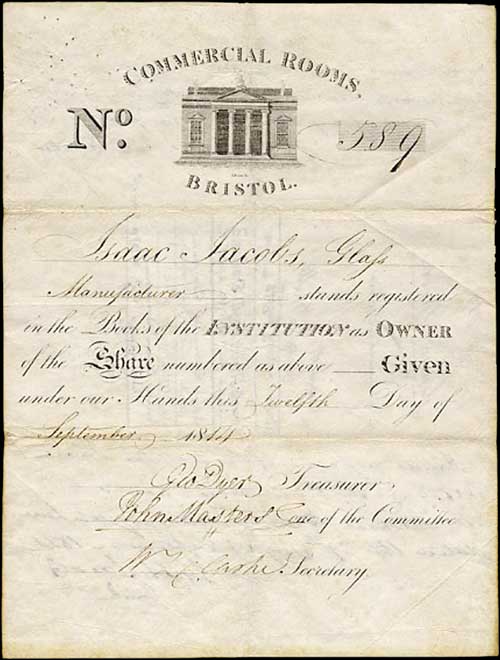 COMMERCIAL ROOMS.
No. 589
BRISTOL.
Isaac Jacobs, Glass
Manufacturer stands registered
in the Books of the INSTITUTION as OWNER
of the Share numbered as above Given
under our Hands this Twelfth Day of
September 1814
Dyer Treasurer
John Masters one of the Committee
Secretary